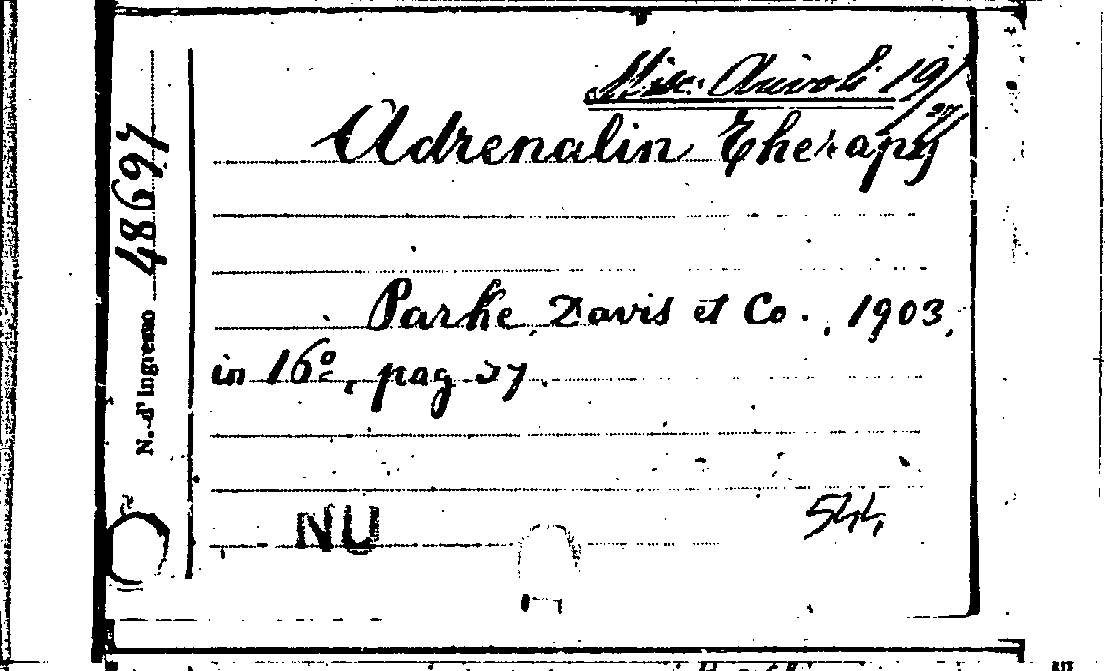 Misc. Chivoli 19/27
Adrenalin Therapy
Parke Davis et Co., 1903,
in 16º, pag 27.
N.-d'Ingresso 48697
NU
544